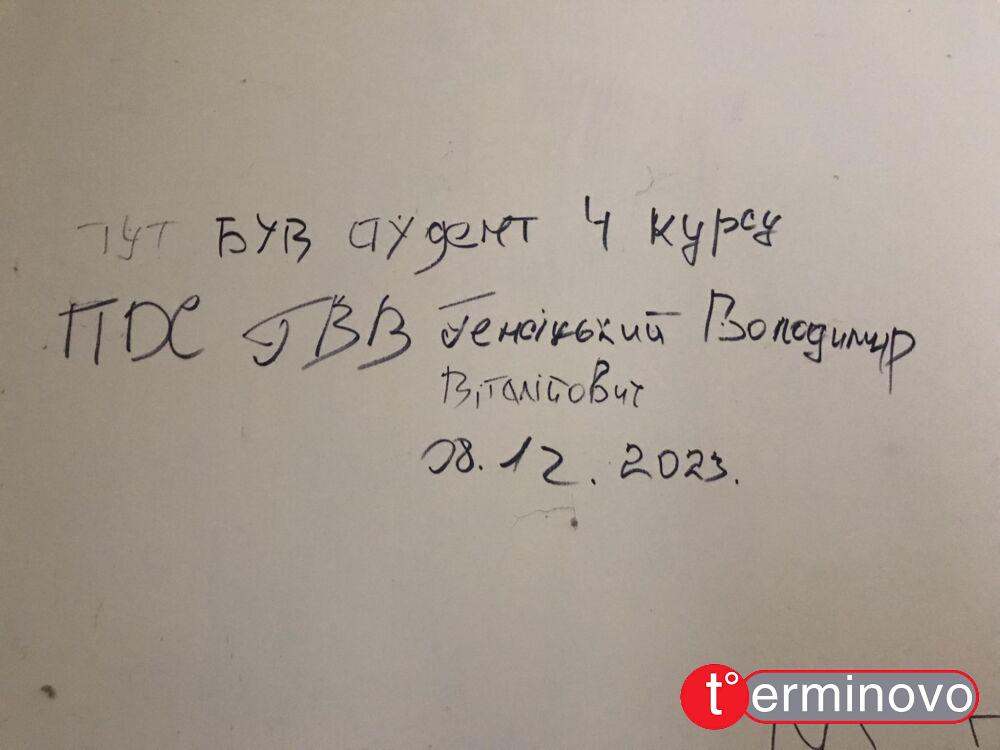 тут був студент 4 курсу
ПДС ГВВ Генсіцький Володимир
Віталійович
08.12.2023.
t°erminovo